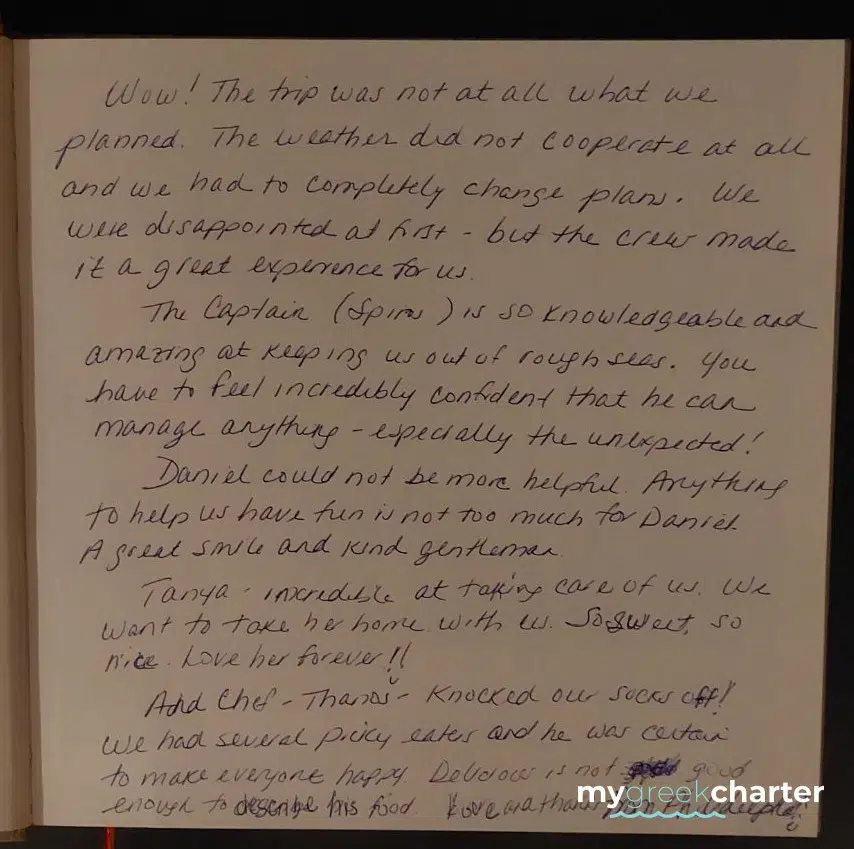 Wow! The trip was not at all what we
planned. The weather did not cooperate at all
and we had to completely change plans. We
were disappointed at first - but the crew made
it a great experience for us.
The Captain (Spiros) is so knowledgeable and
amazing at keeping us out of rough seas. You
have to feel incredibly confident that he can
manage anything - especially the unexpected!
Daniel could not be more helpful. Anything
to help us have fun is not too much for Daniel.
A great smile and kind gentleman.
Tanya - incredible at taking care of us. We
want to take her home with us. So sweet, so
nice. Love her forever!!
And Chef - Thanos - Knocked our socks off!
We had several picky eaters and he was certain
to make everyone happy. Delicious is not good
enough to describe his food. Love and thanks from
mygreekcharter